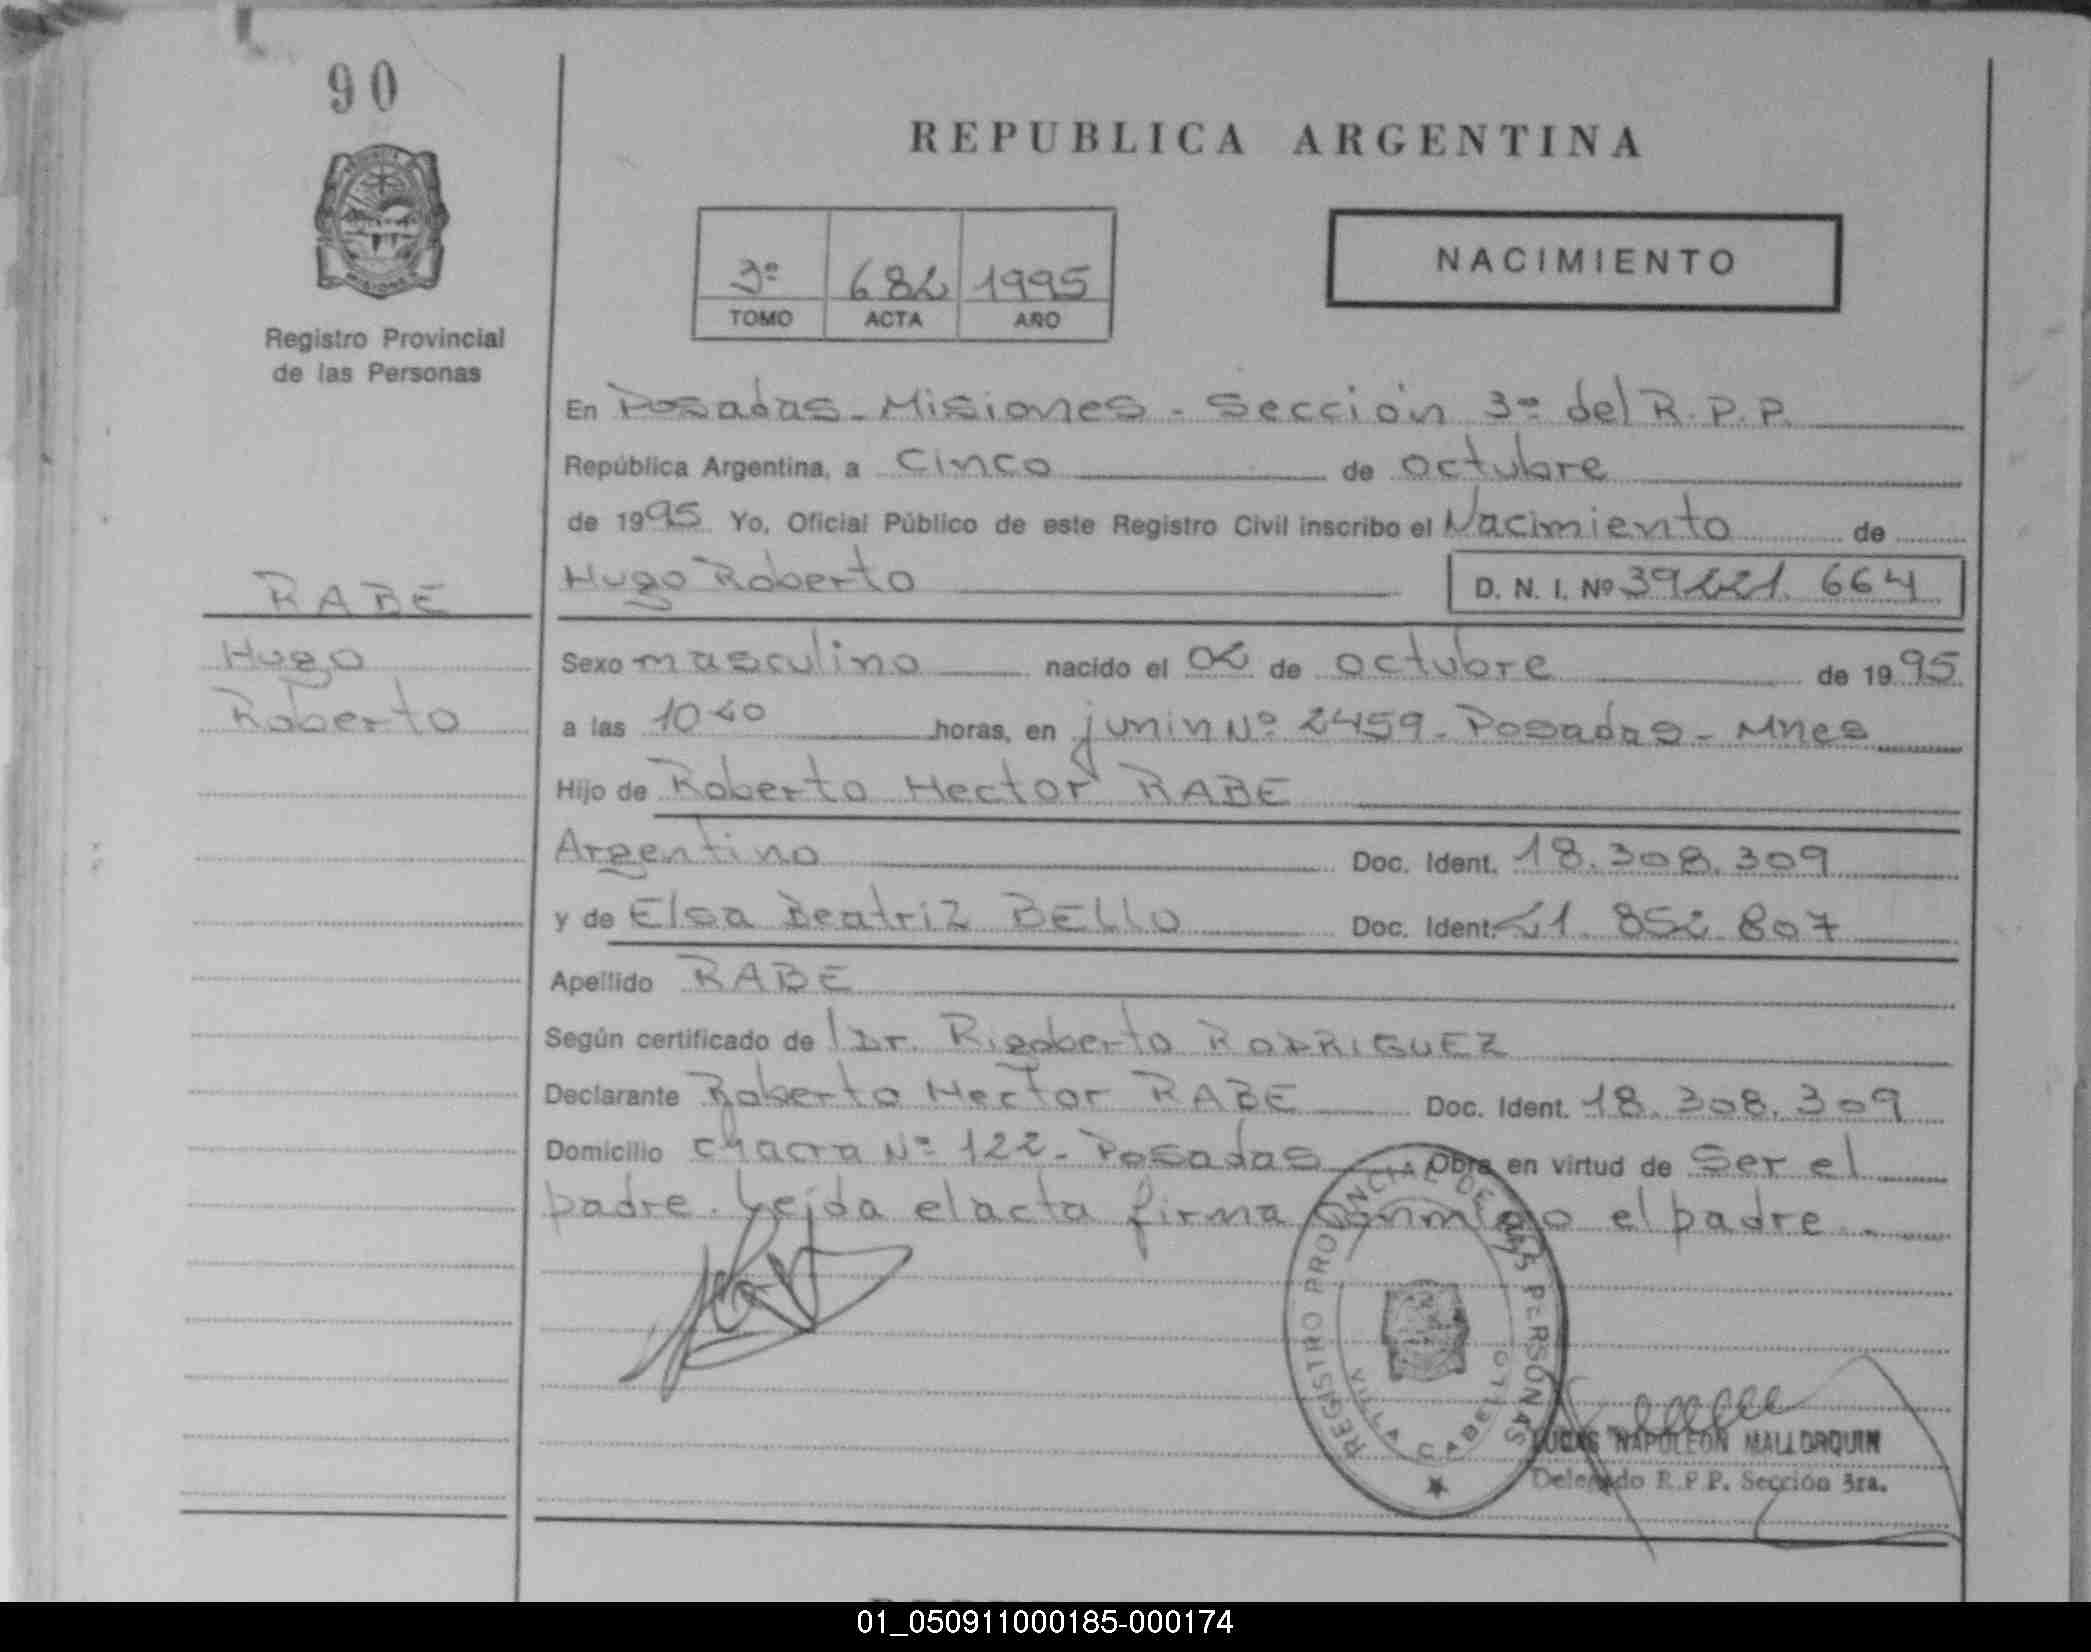 90
REPUBLICA ARGENTINA
NACIMIENTO
3º 682 1995
TOMO ACTA AÑO
Registro Provincial
de las Personas
En Posadas - Misiones - Sección 3º del R.P.P.
República Argentina, a cinco de octubre
de 1995 Yo, Oficial Público de este Registro Civil inscribo el Nacimiento de
RABE
Hugo Roberto D. N. I. Nº 39221.664
Hugo
Roberto
Sexo masculino nacido el 02 de octubre de 1995
a las 10 20 horas, en junin Nº 2459 - Posadas - Mnes
Hijo de Roberto Hector RABE
Argentino Doc. Ident. 18.308.309
y de Elsa Beatriz BELLO Doc. Ident. 21.852.807
Apellido RABE
Según certificado de l Dr. Rigoberto RODRIGUEZ
Declarante Roberto Hector RABE Doc. Ident. 18.308.309
Domicilio chacra Nº 122 - Posadas Obra en virtud de Ser el
padre. Leida el acta firma conmigo el padre.-
REGISTRO PROVINCIAL DE LAS PERSONAS
VILLA CABELLO
LUCAS NAPOLEON MALLORQUIN
Delegado R.P.P. Sección 3ra.
01_050911000185-000174